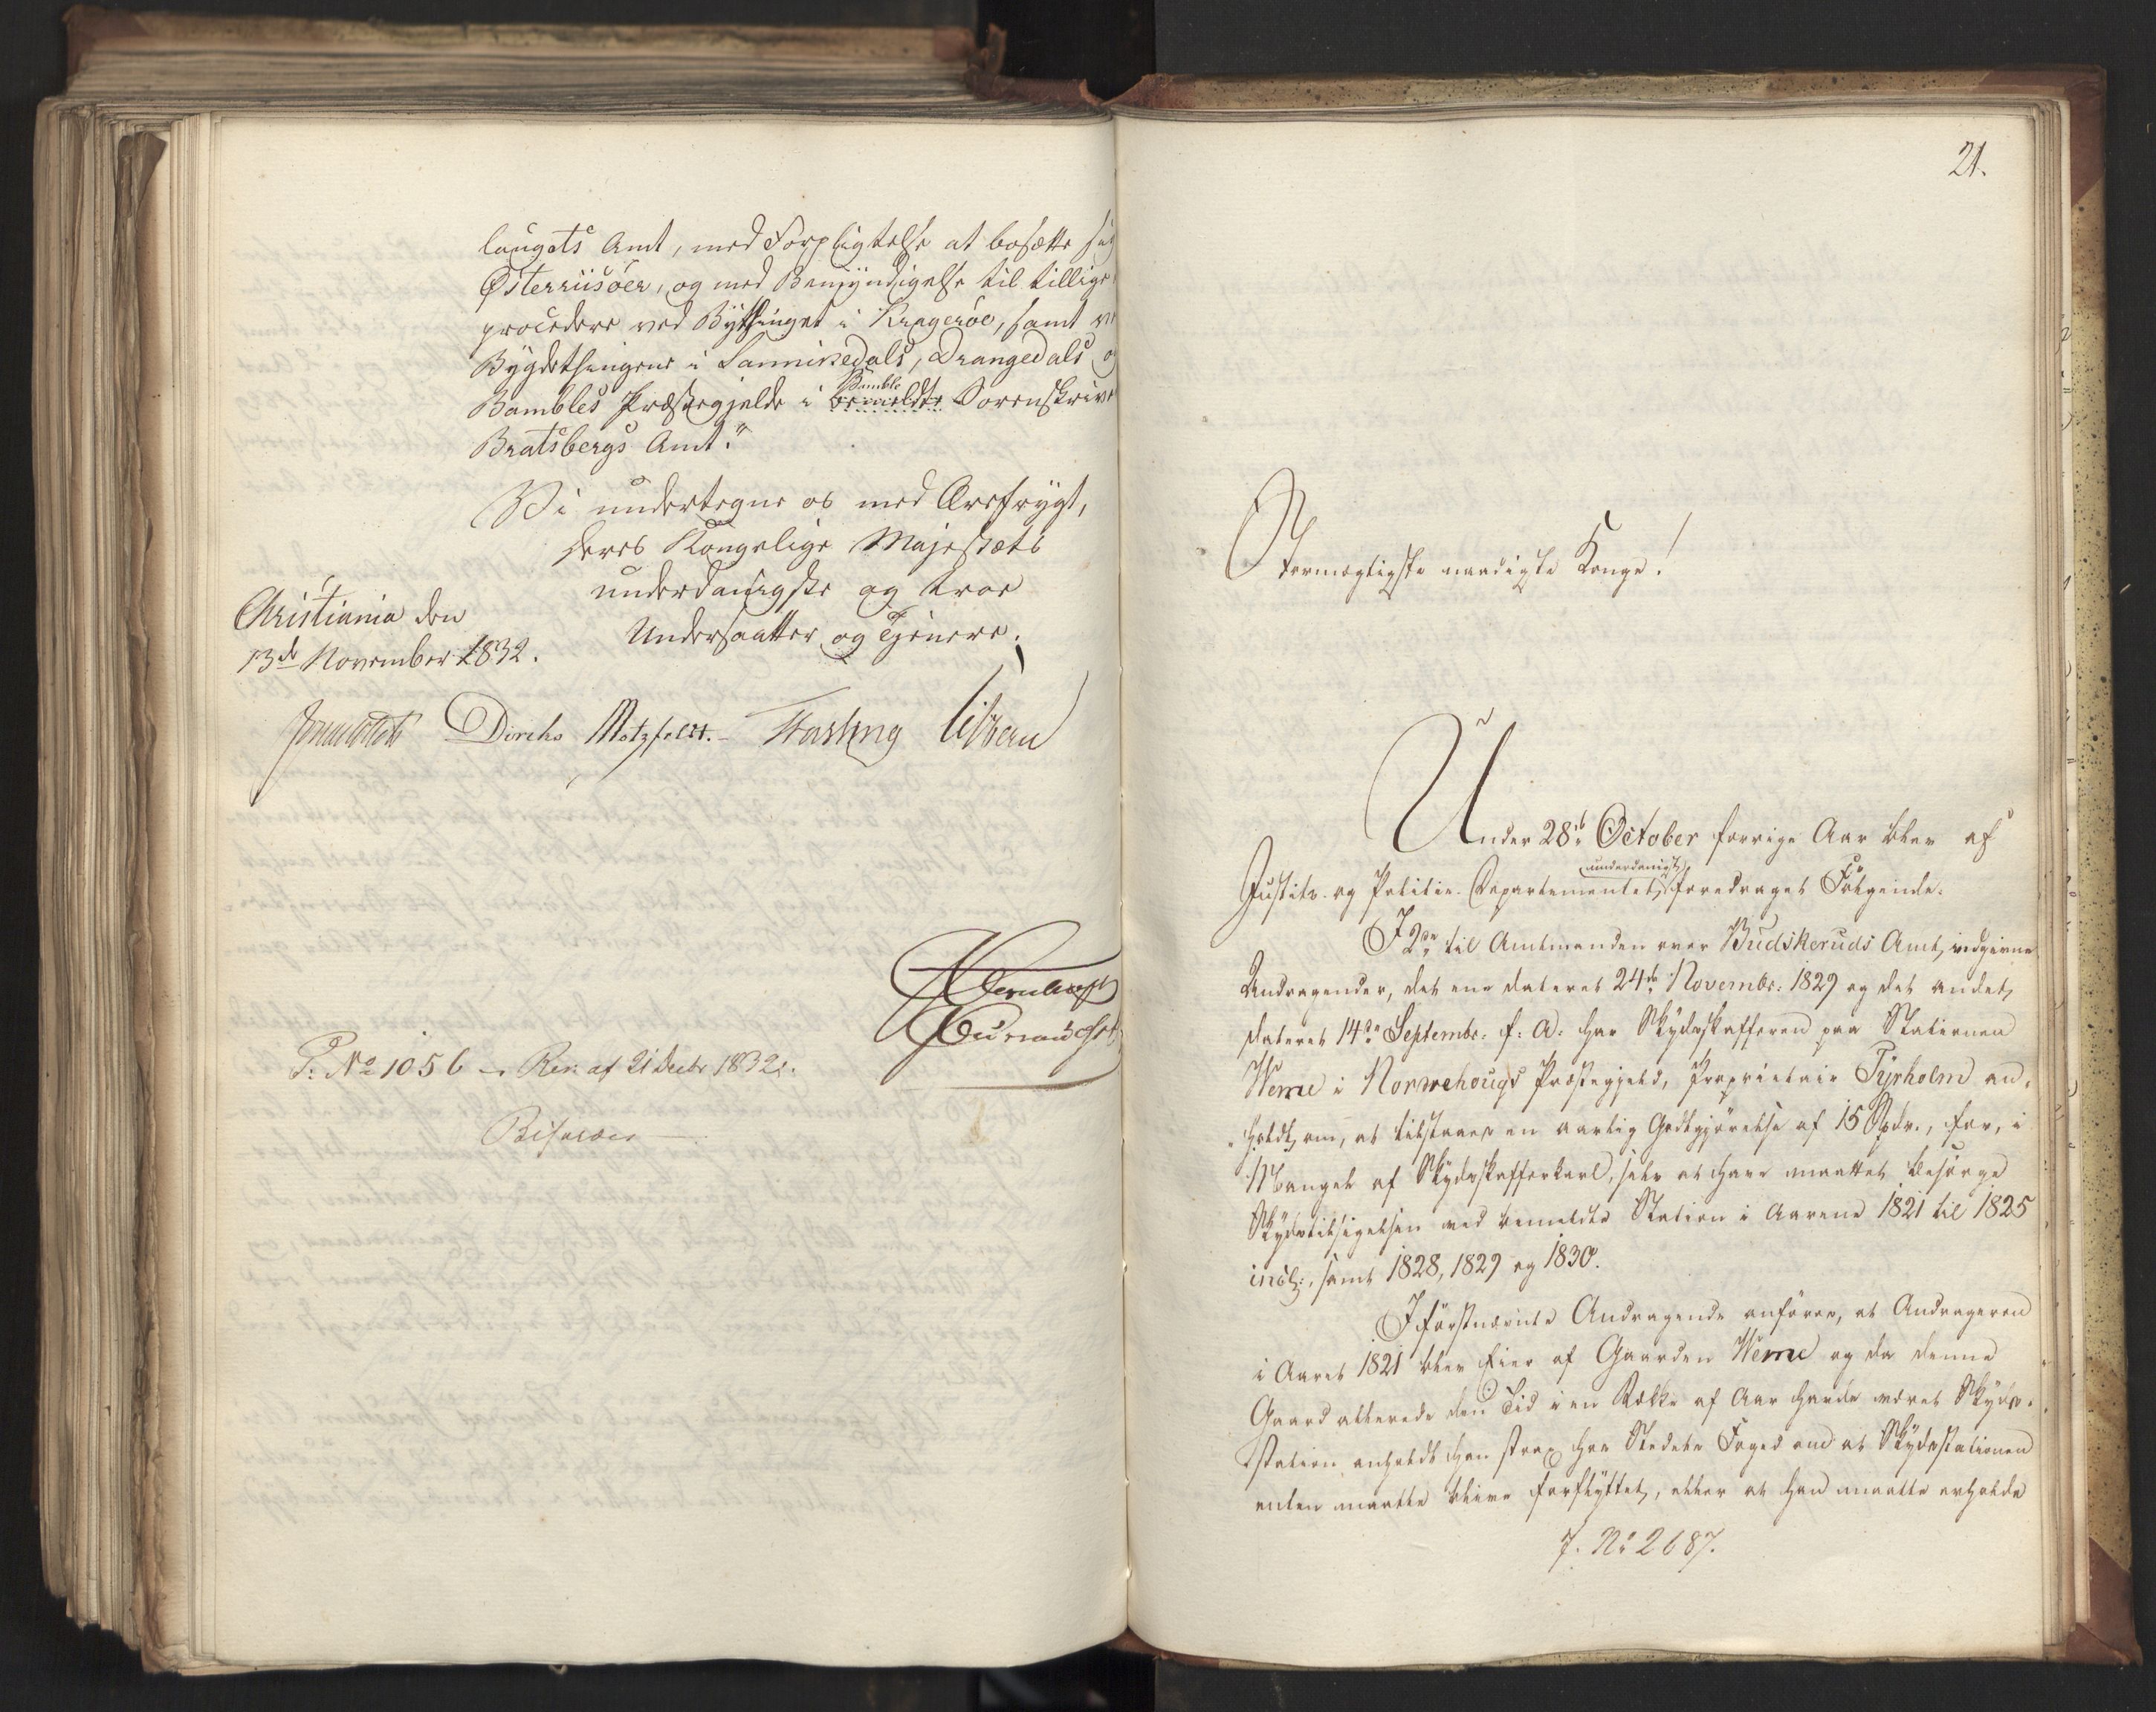 laugets Amt, med Forpligtelse at bosætte sig
Østerriisöer, og med Bemyndigelse til tillige
procedere ved Bythinget i Krageröe, samt ve
Bygdethingene i Sannikedals, Drangedals og
Bamble
Bambles Præstegjelde i bemeldte Sorenskrive
Bratsbergs Amt."
Vi undertegne os med Ærefrygt,
Deres Kongelige Majestæts
underdanigste og troe
Christiania den
Undersaatter og Tjenere.
13de November 1832.
Diriks Motzfeldt. Fasting
P: No 1056 - Res: af 21 Decbr 1832.
21.
Stormægtigste naadigste Konge!
Under 28de October forrige Aar blev af
underdanigst
Justits- og Politie-Departementet foredraget Følgende:
I 2de til Amtmanden over Budskeruds Amt indgivne
Andragender, det ene dateret 24de Novembr: 1829 og det andet
dateret 14de Septembr. f: A: har Skydsskafferen paa Stationen
Weme i Norrehougs Præstegjeld, Proprietair Tyrholm an-
holdt om, at tilstaaes en aarlig Godtgjörelse af 15 Spdr., for, i
Mangel af Skydsskafferkarl, selv at have maattet besørge
Skydstilsigelsen ved bemeldte Station i Aarene 1821 til 1825
incl:, samt 1828, 1829 og 1830.
I förstnævnte Andragende anföres, at Andrageren
i Aaret 1821 blev Eier af Gaarden Weme og da denne
Gaard allerede den Tid i en Række af Aar havde været Skyds-
station anholdt han strax hos Stedets Foged om at Skydsstationen
enten maatte blive forflyttet, eller at han maatte erholde
J. No 2687.